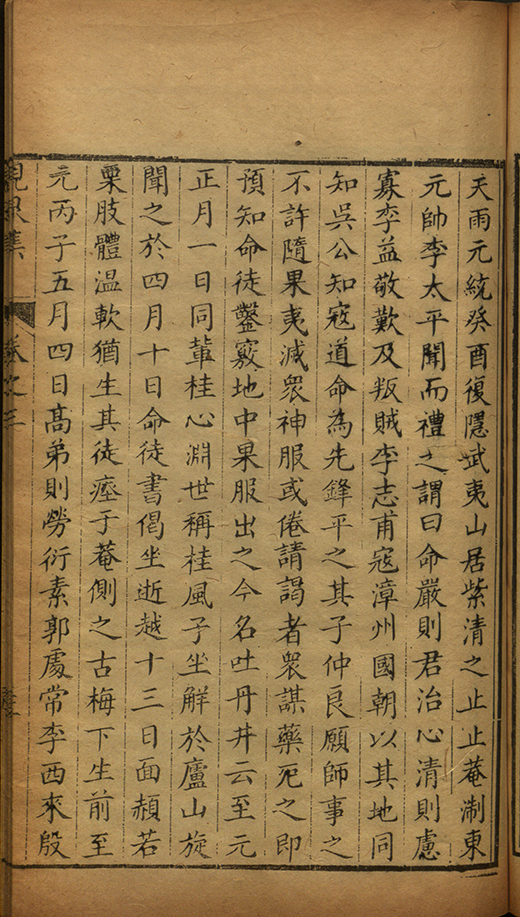 天雨元統癸酉復隱武夷山居紫清之止止菴淛東
元帥李太平聞而禮之謂曰命嚴則君治心清則慮
寡李益敬歎及叛賊李志甫寇漳州國朝以其地同
知吳公知寇道命為先鋒平之其子仲良願師事之
不許隨果夷滅衆神服或倦請謁者衆謀藥死之即
預知命徒鑿竅地中果服出之今名吐丹井云至元
正月一日同輩桂心淵世稱桂風子坐解於廬山旋
聞之於四月十日命徒書偈坐逝越十三日面頳若
栗肢體溫軟猶生其徒瘞于菴側之古梅下生前至
元丙子五月四日高弟則勞衍素郭處常李西來殷
卷之三